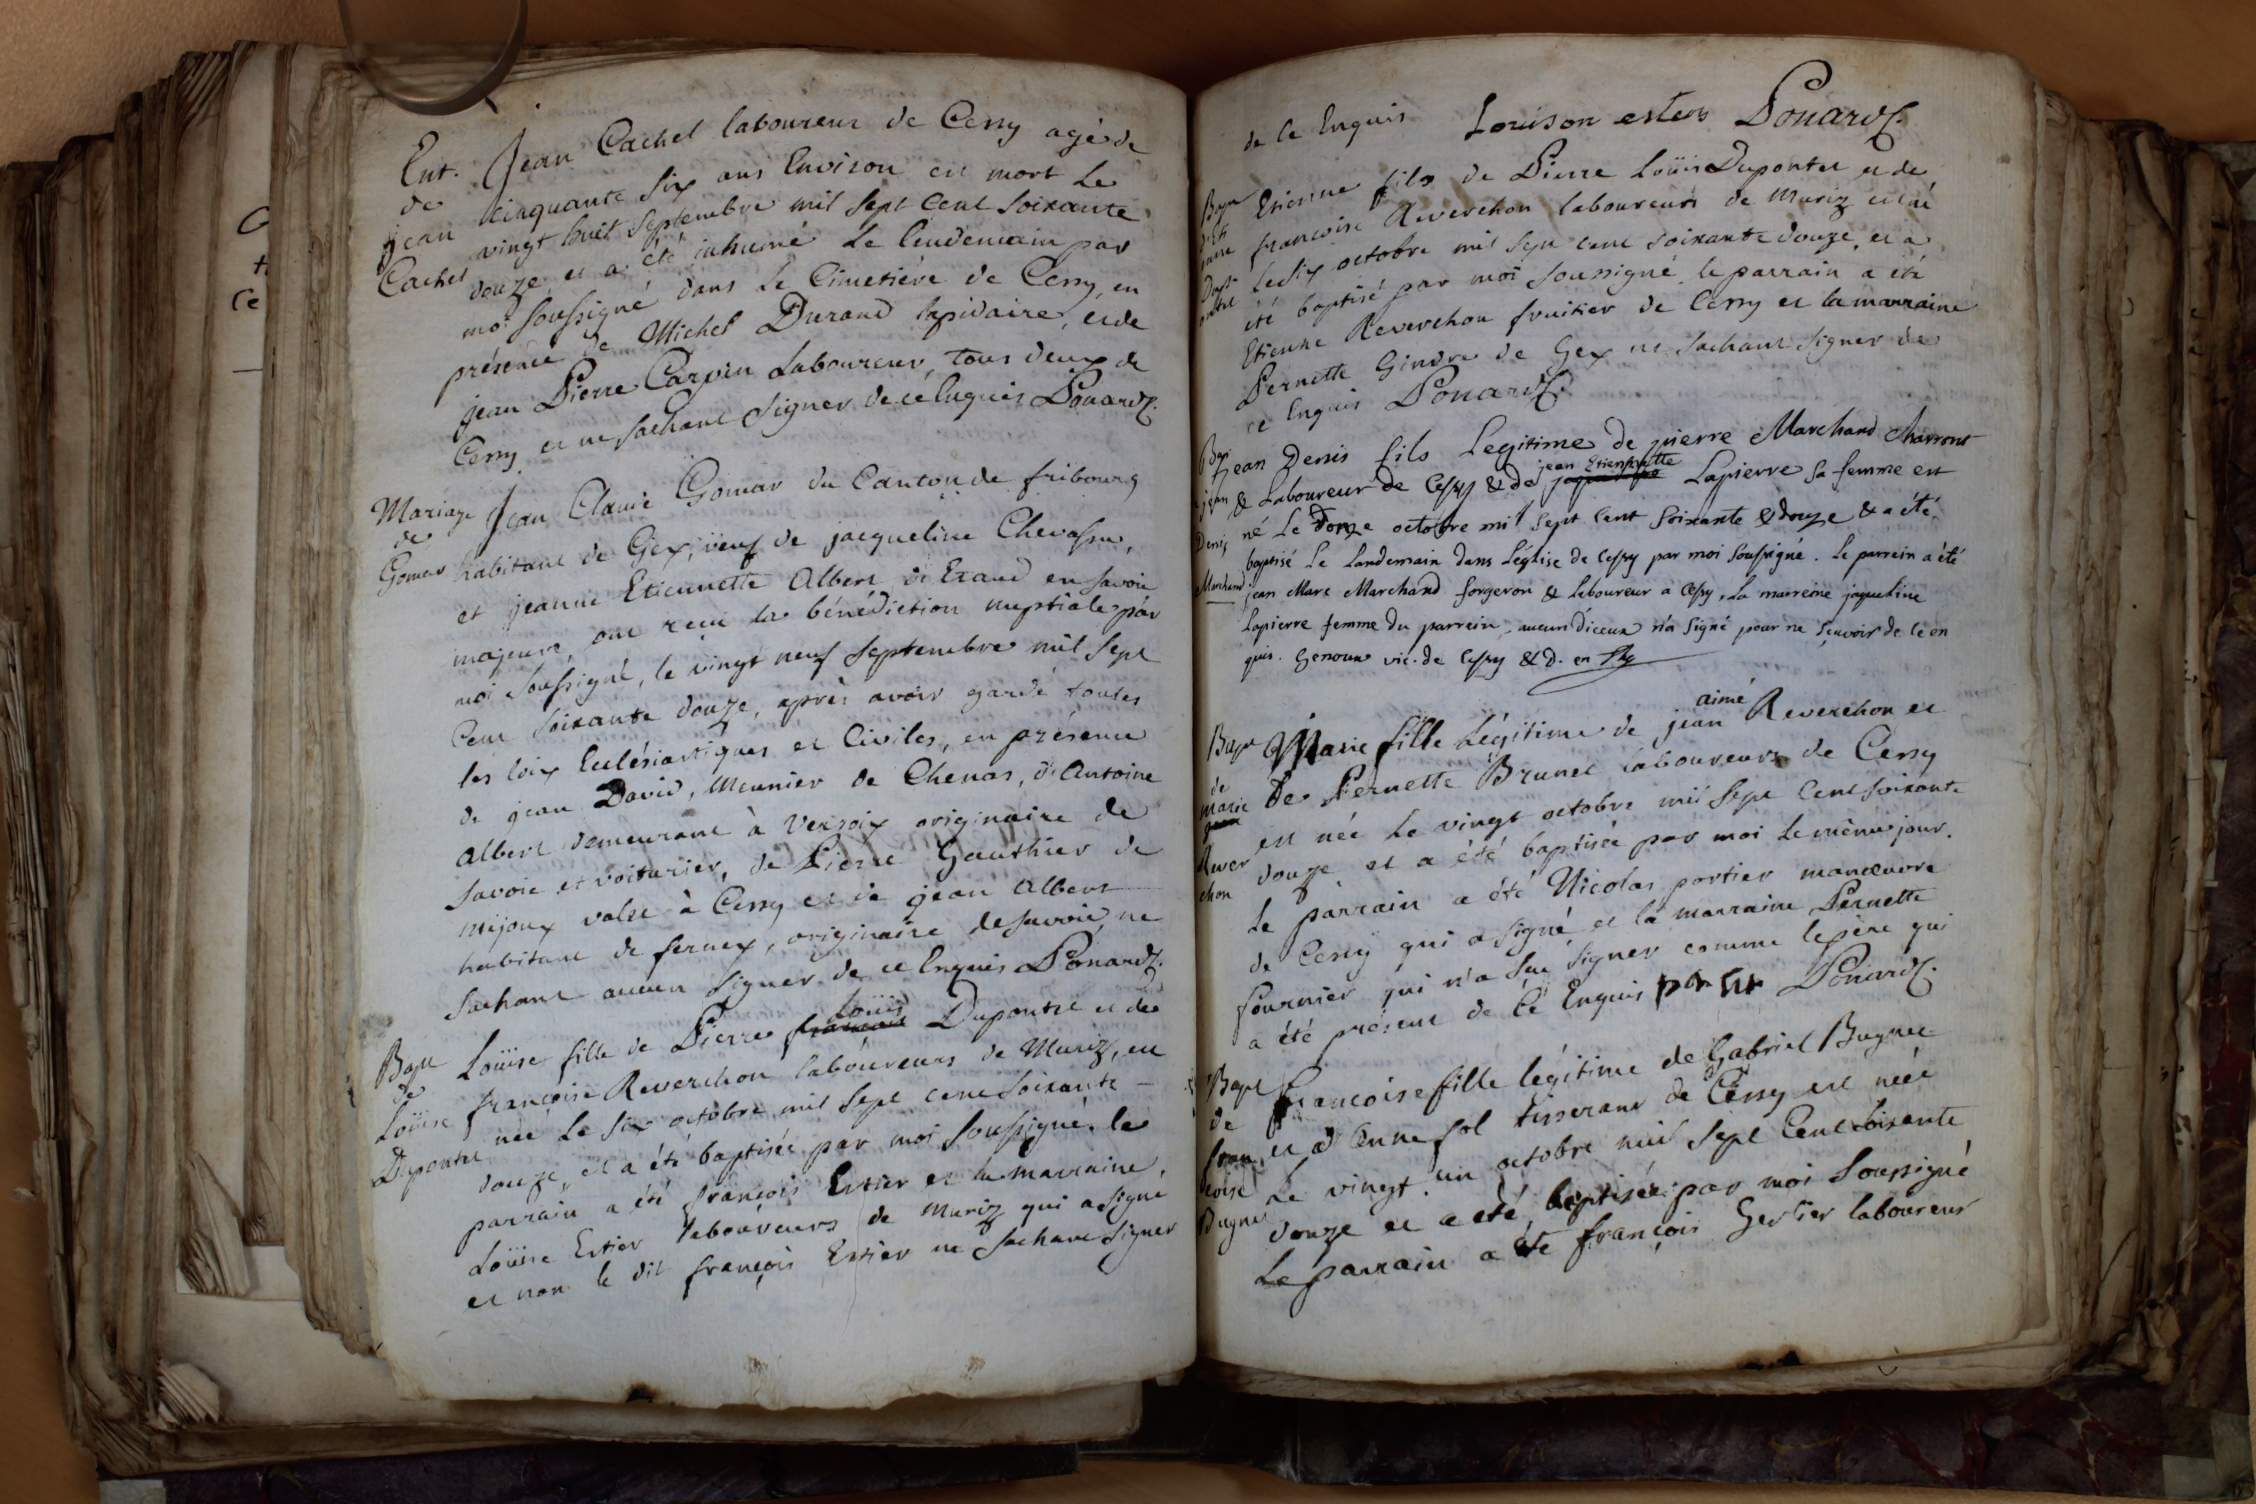 Ent. Jean Cachel laboureur de Cessy agé de
de cinquante six ans Environ est mort Le
jean vingt huit septembre mil sept Cent soixante
Cachel douze et a été inhumé le lendemain par
moi soussigné dans le Cimetière de Cessy, en
présence de Michel Durand lapidaire, et de
jean Pierre Carpin Laboureur, tous deux de
Cessy et ne sachant signer de ce Enquis Ponard C.
Mariage Jean Claude Gomar du Canton de fribourg
de
Gomar habitant de Gex, veuf de jacqueline Chevassu,
et jeanne Etiennette Albert d' en savoie
majeure, ont reçu la bénédiction nuptiale par
moi soussigné, le vingt neuf septembre mil sept
Cent soixante douze, après avoir gardé toutes
les loix Ecclésiastiques et Civiles, en présence
de jean David, Meunier de Chenas, d'Antoine
Albert demeurant à Versoix originaire de
savoie et voiturier, de Pierre Gauthier de
mijoux valet à Cessy et de jean Albert
habitant de fernex, originaire de savoie, ne
sachant aucun signer de ce Enquis Ponard C.
Louis
Bapt Louïse fille de Pierre Dupontet et de
de
Louïse françoise Reverchon laboureurs de Muriz, est
Dupontet née Le six octobre mil sept cent soixante
douze, et a été baptisée par moi soussigné, le
parrain a été françois Estier et la marraine
Louïse Estier laboureurs de muriz qui a signé
et non le dit françois Estier ne sachant signer
de Ce Enquis Louison Ponard C.
Bapt Etienne fils de Pierre Louïs Dupontet et de
d'Eti
enne françoise Reverchon laboureurs de Muriz est né
Dup
ontet le six octobre mil sept cent soixante douze, et a
été baptisé par moi soussigné le parrain a été
Etienne Reverchon fruitier de Cessy et la marraine
Pernette Gindre de Gex ne sachant signer de
ce Enquis Ponard C.
Bap jean Denis fils Legitime de pierre Marchand charront
jean Etiennette
jean & Laboureur de Cessy & de Lapierre sa femme est
Denis né Le octobre mil sept cent soixante & douze & a été
baptisé Le Landemain dans L'église de Cessy par moi soussigné. Le parrein a été
Marchand jean Marc Marchand forgeron & Leboureur a Cessy, La marreine jaqueline
Lapierre femme du parrein, aucun d'iceux n'a signé pour ne sçavoir de ce en
quis. Genoux vic. de Cessy & D. en
aimé
Bapt Marie fille Légitime de jean Reverchon et
de
marie De Pernette Brunet laboureurs de Cessy
Rever est née Le vingt octobre mil sept Cent soixante
chon douze et a été baptisée par moi le même jour.
Le parrain a été Nicolas portier manœuvre
de Cessy qui a signé et la marraine Pernette
fournier qui n'a sçu signer comme le père qui
a été présent de Ce Enquis Ponard C.
Bapt françoise fille légitime de Gabriel Bugnet
de et d'Enne fol tisserans de Cessy est néé
fran
çoise Le vingt un octobre mil sept Cent soixante
Bugnet douze et a été baptisée par moi soussigné
Le parrain a été françois Gertier laboureur